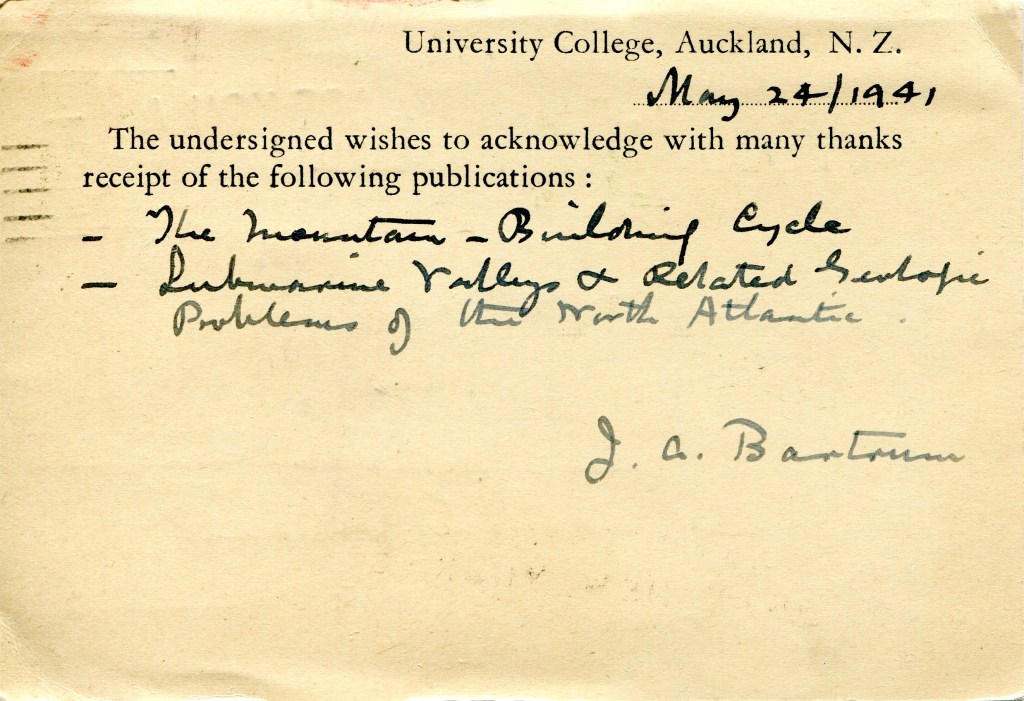 University College, Auckland, N. Z.
May 24/1941
The undersigned wishes to acknowledge with many thanks
receipt of the following publications :
– The Mountain – Building Cycle
– Submarine Valleys & Related Geologic
Problems of the North Atlantic .
J. A. Bartrum